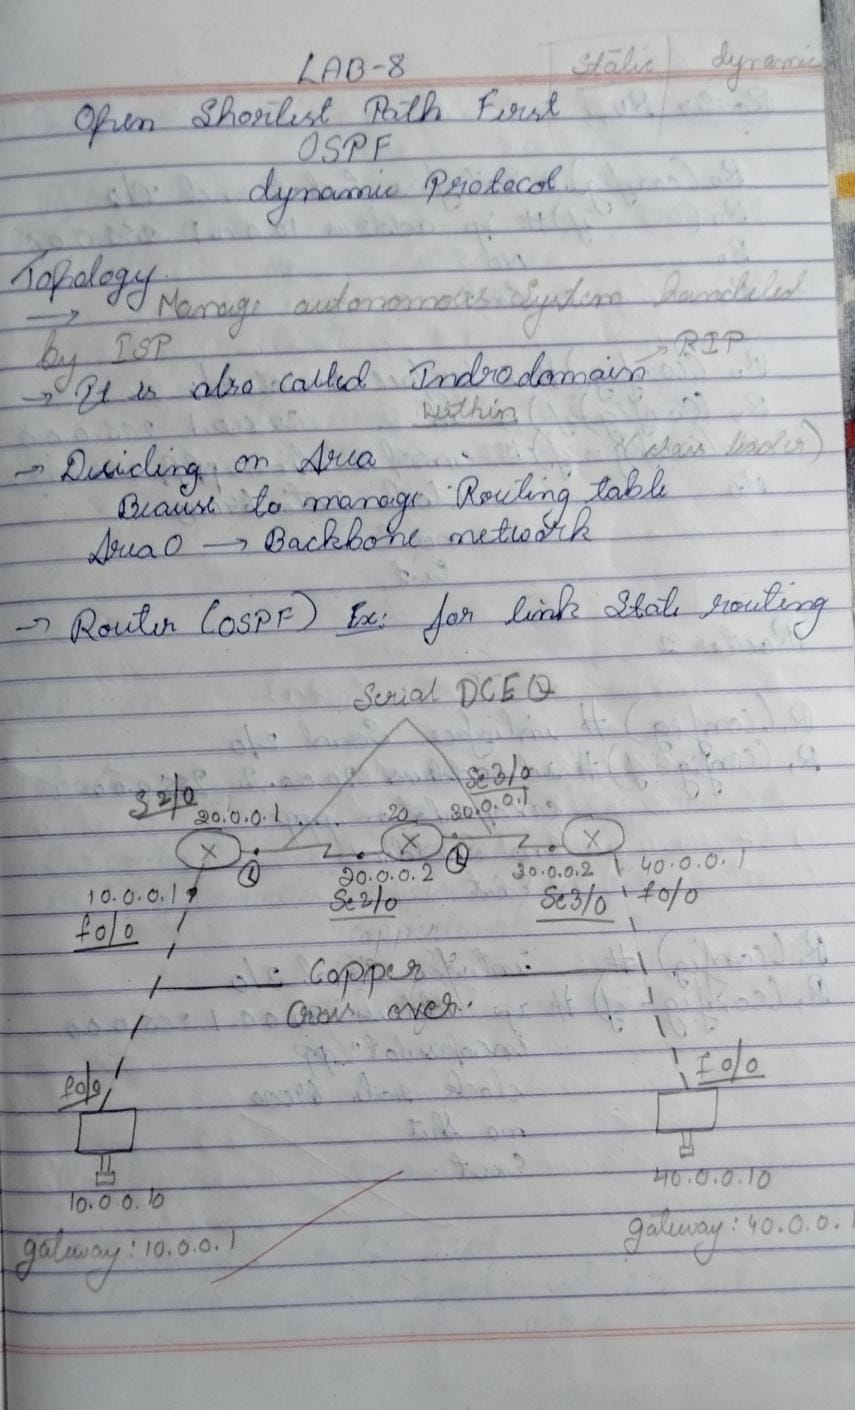 LAB-8
Static | dynamic
Open Shortest Path First
OSPF
dynamic Protocol
Topology
→ Manage autonomous System
by ISP
→ RIP
→ It is also called Indrodomain
within
→ Dividing on Area
Beause to manage Routing table
Area 0 → Backbone network
→ Router (OSPF) Ex: for link State routing
Serial DCE
S 2/0
Se3/0
20.0.0.1
20
30.0.0.1
X X X
20.0.0.2
30.0.0.2
40.0.0.1
10.0.0.1
Se2/0
Se3/0
fo/0
fo/0
Copper
Cross over
fo/0
fo/0
10.0.0.10
40.0.0.10
gateway: 10.0.0.1
gateway: 40.0.0.1